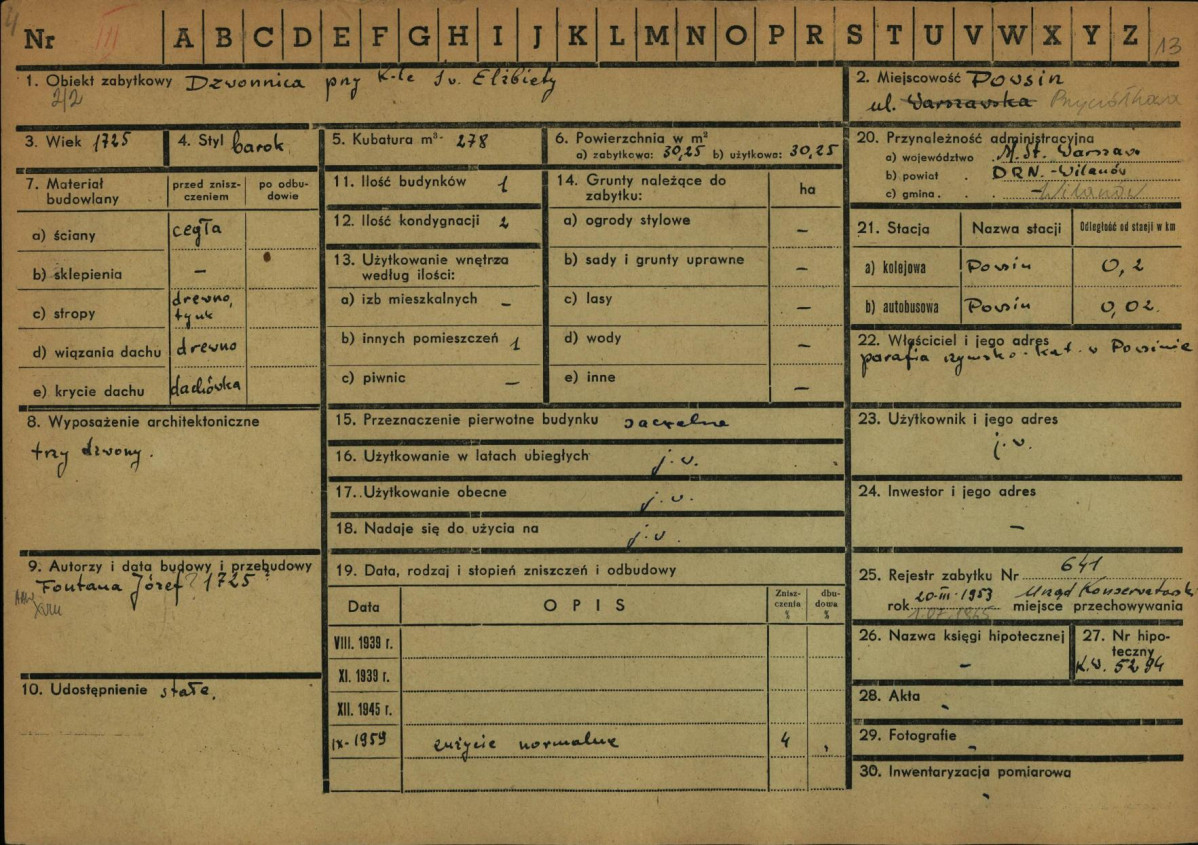 4
Nr III A B C D E F G H I J K L M N O P R S T U V W X Y Z 13
1. Obiekt zabytkowy Dzwonnica przy K-le Św. Elżbiety
2/2
2. Miejscowość Powsin
ul. Warszawska
3. Wiek 1725
4. Styl barok
5. Kubatura m³- 278
6. Powierzchnia w m²
a) zabytkowa: 30,25 b) użytkowa: 30,25
20. Przynależność administracyjna
a) województwo M. St. Warszawa
b) powiat DRN. - Wilanów
c) gmina - Wilanów
7. Materiał budowlany
przed zniszczeniem
po odbudowie
a) ściany cegła
b) sklepienia –
c) stropy drewno, tynk
d) wiązania dachu drewno
e) krycie dachu dachówka
11. Ilość budynków 1
12. Ilość kondygnacji 2
13. Użytkowanie wnętrza
według ilości:
a) izb mieszkalnych –
b) innych pomieszczeń 1
c) piwnic –
14. Grunty należące do
zabytku:
ha
a) ogrody stylowe –
b) sady i grunty uprawne –
c) lasy –
d) wody –
e) inne –
21. Stacja Nazwa stacji Odległość od stacji w km
a) kolejowa Powsin 0,2
b) autobusowa Powsin 0,02
22. Właściciel i jego adres
parafia rzymsko-kat. w Powsinie
8. Wyposażenie architektoniczne
trzy dzwony.
15. Przeznaczenie pierwotne budynku sacralne
16. Użytkowanie w latach ubiegłych j.w.
17. Użytkowanie obecne j.w.
18. Nadaje się do użycia na j.w.
23. Użytkownik i jego adres
j.w.
24. Inwestor i jego adres
–
9. Autorzy i data budowy i przebudowy
Fontana Józef ? 1725
XVIII
10. Udostępnienie stałe.
19. Data, rodzaj i stopień zniszczeń i odbudowy
Data OPIS Zniszczenia % dbudowa %
VIII. 1939 r.
XI. 1939 r.
XII. 1945 r.
IX-1959 zużycie normalne 4
25. Rejestr zabytku Nr 641
rok 20-III-1953 miejsce przechowywania Urząd Konserwatorski
26. Nazwa księgi hipotecznej
–
27. Nr hipoteczny
K.W. 5294
28. Akta
29. Fotografie
30. Inwentaryzacja pomiarowa